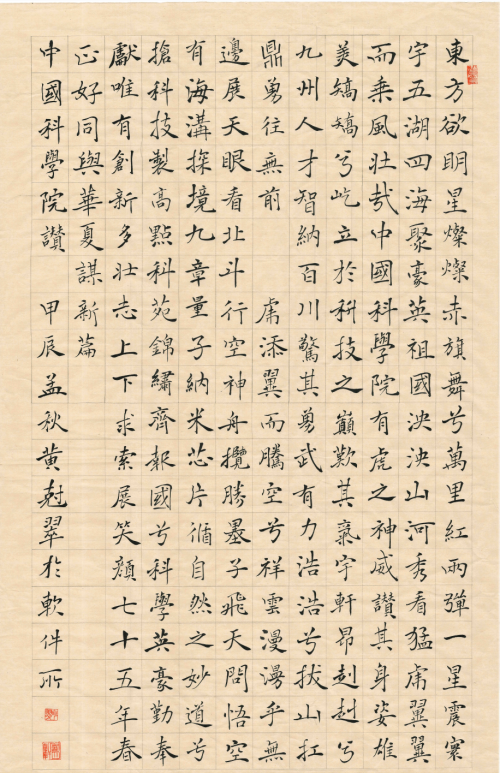 東方欲明星燦燦赤旗舞兮萬里紅兩彈一星震寰
宇五湖四海聚豪英祖國泱泱山河秀看猛虎翼翼
而乘風壯哉中國科學院有虎之神威讚其身姿雄
美矯矯兮屹立於科技之巔歎其氣宇軒昂赳赳兮
九州人才智納百川驚其勇武有力浩浩兮拔山扛
鼎勇往無前 虎添翼而騰空兮祥雲漫漫乎無
邊展天眼看北斗行空神舟攬勝墨子飛天問悟空
有海溝探境九章量子納米芯片循自然之妙道兮
搶科技製高點科苑錦繡齊報國兮科學英豪勤奉
獻唯有創新多壯志上下求索展笑顏七十五年春
正好同與華夏謀新篇
中國科學院讚 甲辰孟秋黃尅翠於軟件所